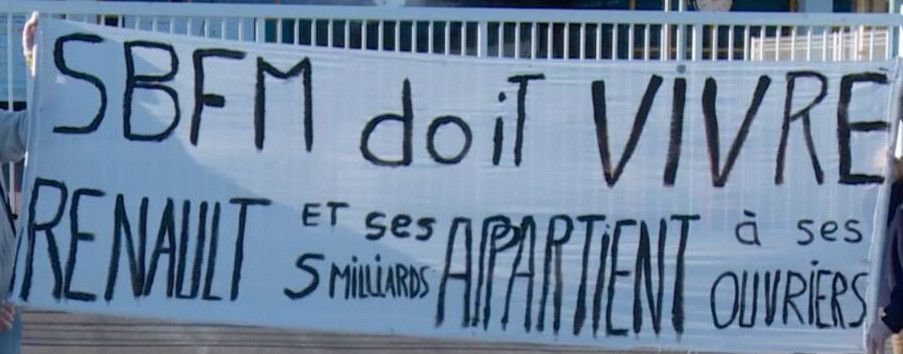 SBFM doit VIVRE
RENAULT ET ses 5 MILLIARDS APPARTIENT à ses OUVRIERS